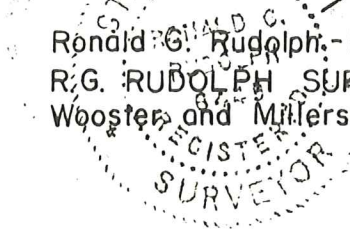 Ronald G. Rudolph -
R.G. RUDOLPH SUR
Wooster and Millers
REGISTERED
SURVEYOR